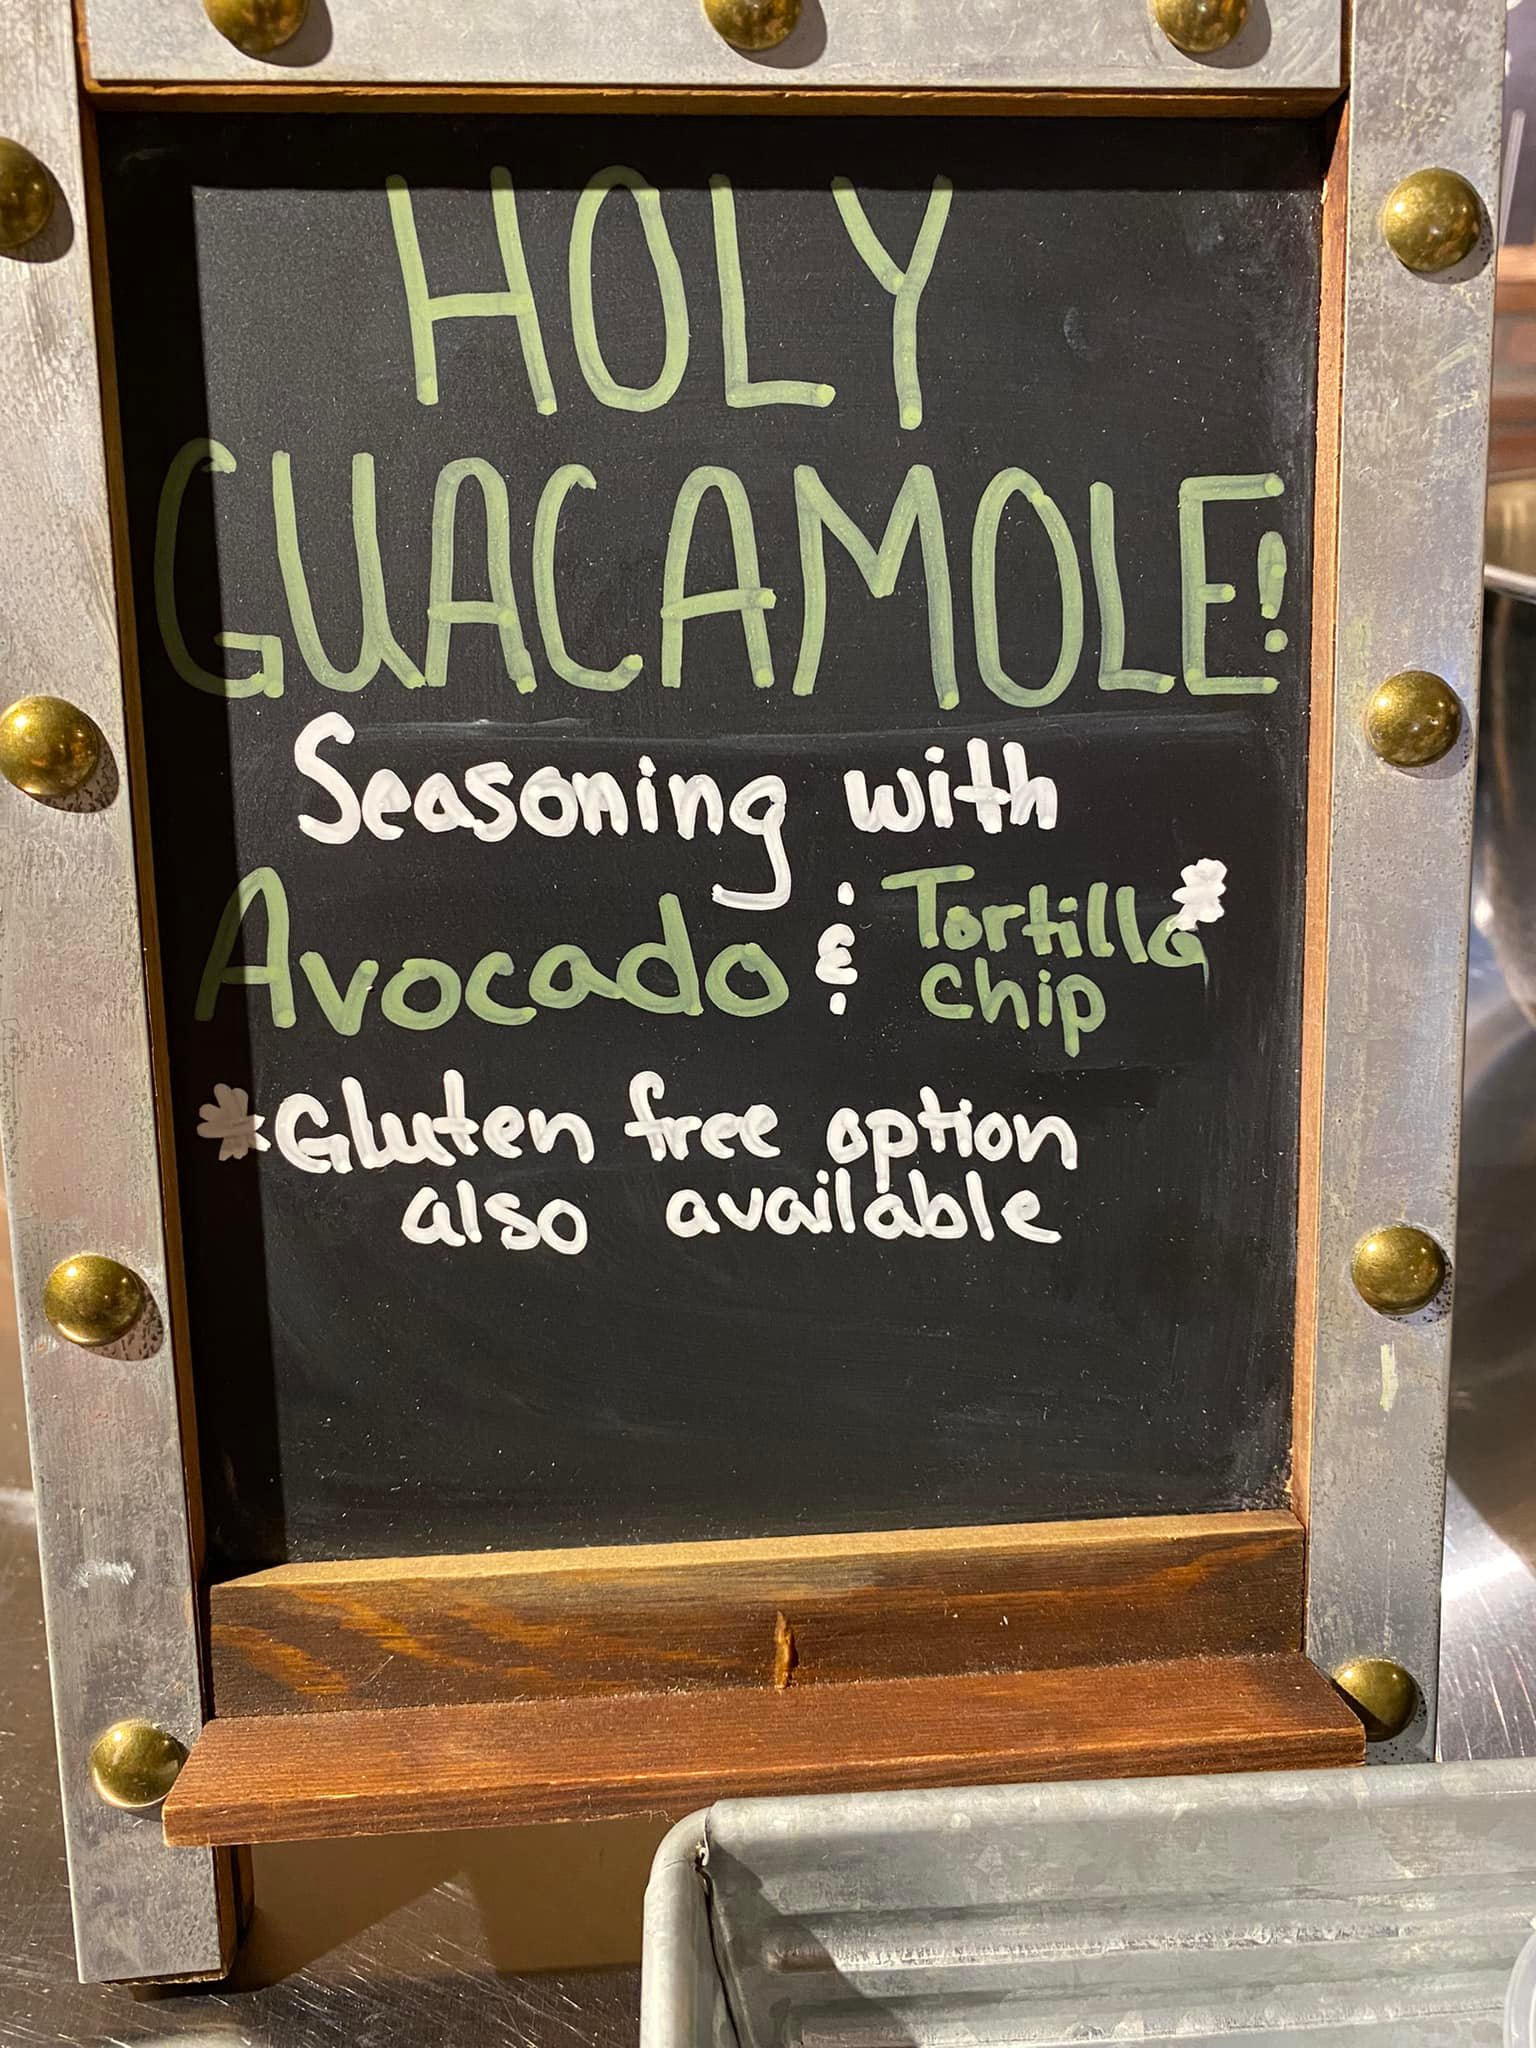 HOLY
GUACAMOLE!
Seasoning with
Avocado & Tortilla*
Chip
*Gluten free option
also available